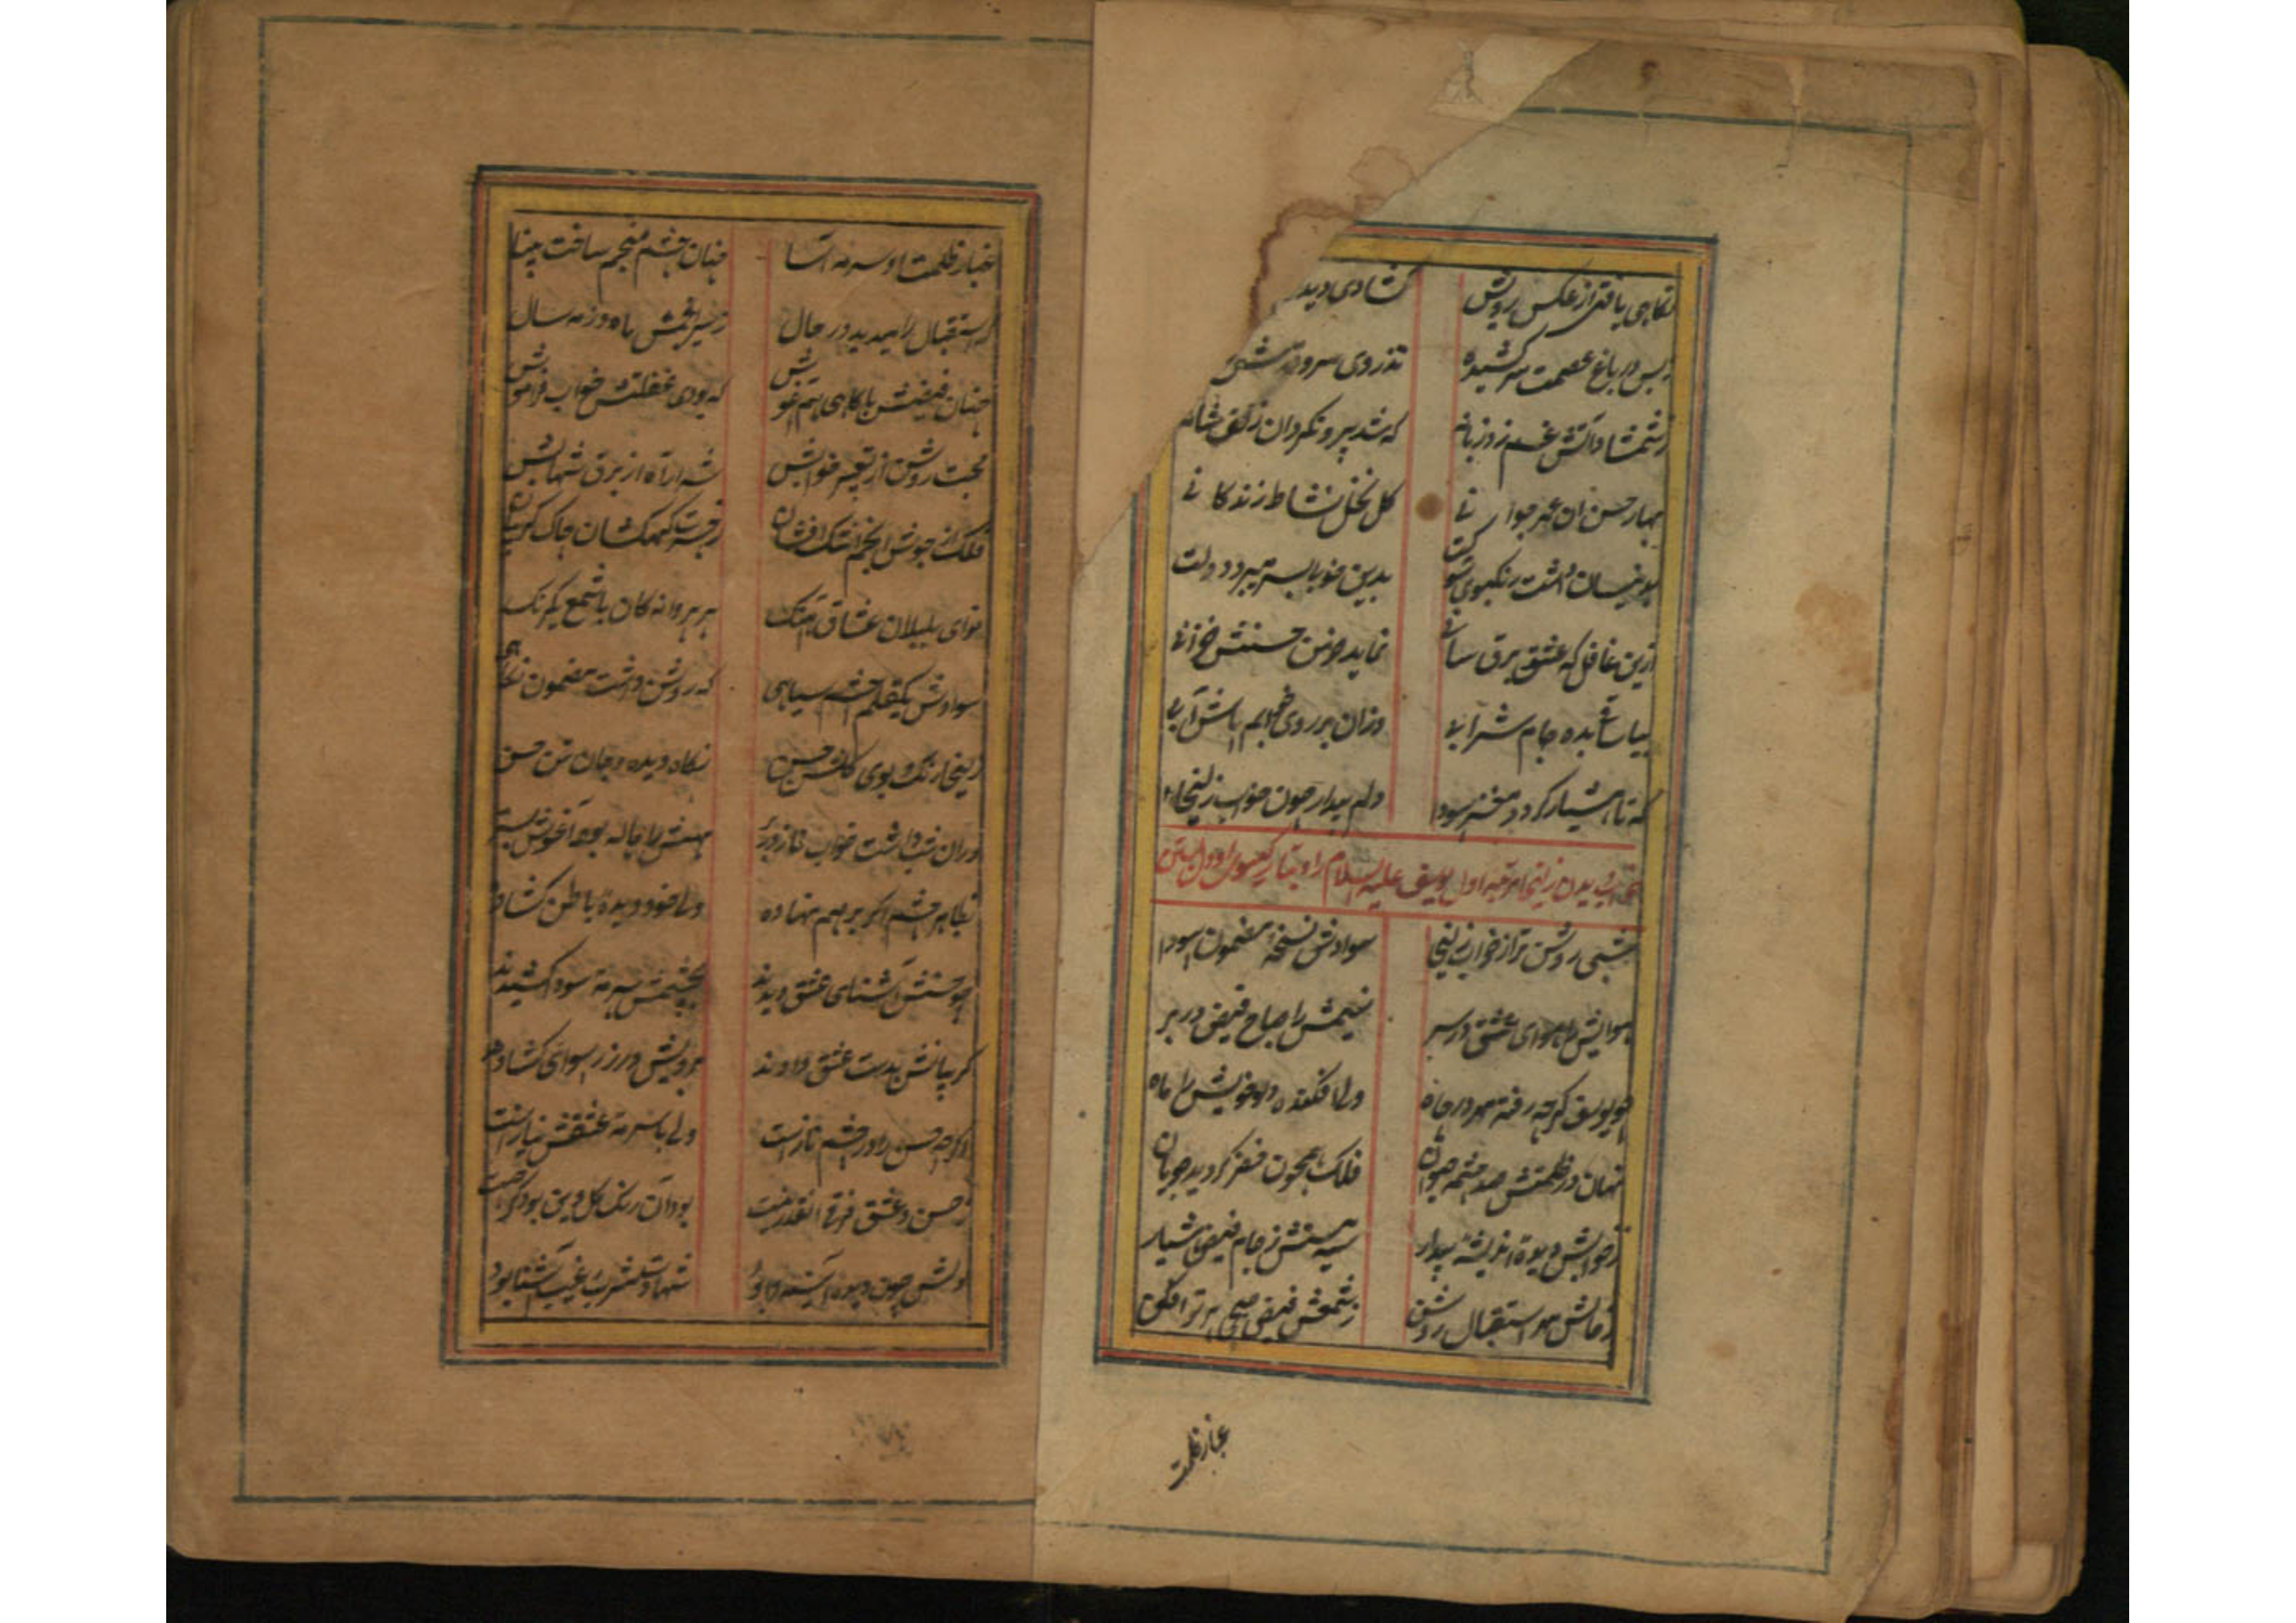 نکاهی یافتی از عکس رویش کشادی دید
بس در باغ عصمت سر کشیده تذروی سرو
ز شمشاد آتش غم زد زبانه که شد پیرو نکردان زلف شانه
بهار حسن ان مهر جوانی کل نخل نشاط زندکانی
داشت بدین خوبا بسر میبرد دولت
ازین غافل که عشق برق سانی نماید خرمن حسنش خزانی
بیا بده جام شرابی وزان بر روی خوابم پاش آبی
که تا هشیار کردد مغز سودا دلم بیدار چون خواب زلیخا
بخواب دیدن زلیخا مرتبه اول یوسف علیه السلام را و بتار کیسوی او دل بستن
شبی روشن تر از خواب زلیخا سوادش نسخهٔ مضمون سودا
هوایش را هوای عشق در سر نسیمش را صباح فیض در بر
چو یوسف کرچه رفته مهر در چاه ولی افکنده دلو خویش را ماه
نهان در ظلمتش صد چشمه حیوان فلک همچون خضر کردید جویان
ز خوابش دیدهٔ اندیشه بیدار سیه مستش ز جام فیض هشیار
استقبال روشن ز شمعش فیض صبحی پرتو افکن
غبار ظلمت
غبار ظلمت او سرمه آسا چنان چشم منجم ساخت بینا
که استقبال را میدید در حال ز سیر انجمش ماه و زمه سال
چنان فیضش باکاهی هم آغوش که بودی غفلتش خواب فراموش
محبت روشن از تعبیر خوابش شرار آه از برق شهابش
فلک از جوش انجم اشک افشان ز حسرت کهکشان چاک کریبان
نوای بلبلان عشاق آهنک پر پروانه کان با شمع یکرنک
سوادش یکقلم چشم سیاهی که روشن داشت مضمون نکاهی
زلیخا رنک و بوی کلشن حسن نکاه دیده و جان تن حسن
در آن شب داشت خواب ناز در بر مهش را هاله بود آغوش بستر
بظاهر چشم اکر بر هم نهاده ولی خود دیدهٔ باطن کشاده
چو حسنش آشنای عشق دیدند بچشمش سرمهٔ سودا کشیدند
کریبانش بدست عشق دادند برویش در ز رسوای کشادند
اکرچه حسن را در چشم ناز است ولی با سرمهٔ عشقش نیاز است
ز حسن و عشق فرق آنقدر نیست بود آن رنک کل وین بود
دلش چون دیده آیینه شهادتش را غیب آشنا بود